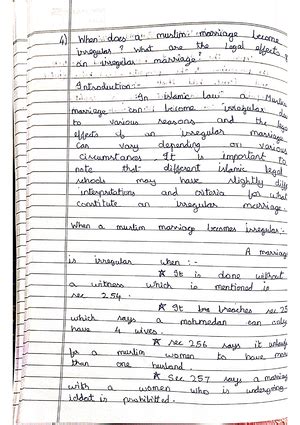 4) When does a muslim marriage become
irregular? What are the legal effects
an irregular marriage?
Introduction:-
In islamic law a Muslim
marriage can become irregular due
to various reasons and the legal
effects of an irregular marriage
can vary depending on various
circumstances. It is important to
note that different islamic legal
schools may have slightly diff
interpretations and criteria for what
constitute an irregular marriage.
When a muslim marriage becomes irregular:-
A marriage
is irregular when :-
★ It is done without
a witness which is mentioned is
sec 254.
★ It breaches sec 25
which says a mohmedan can only
have 4 wives.
★ sec 256 says it
for a muslim women to have more
than one husband.
★ Sec 257 says a marriag
with a women who is undergoing
iddat is prohibitted.